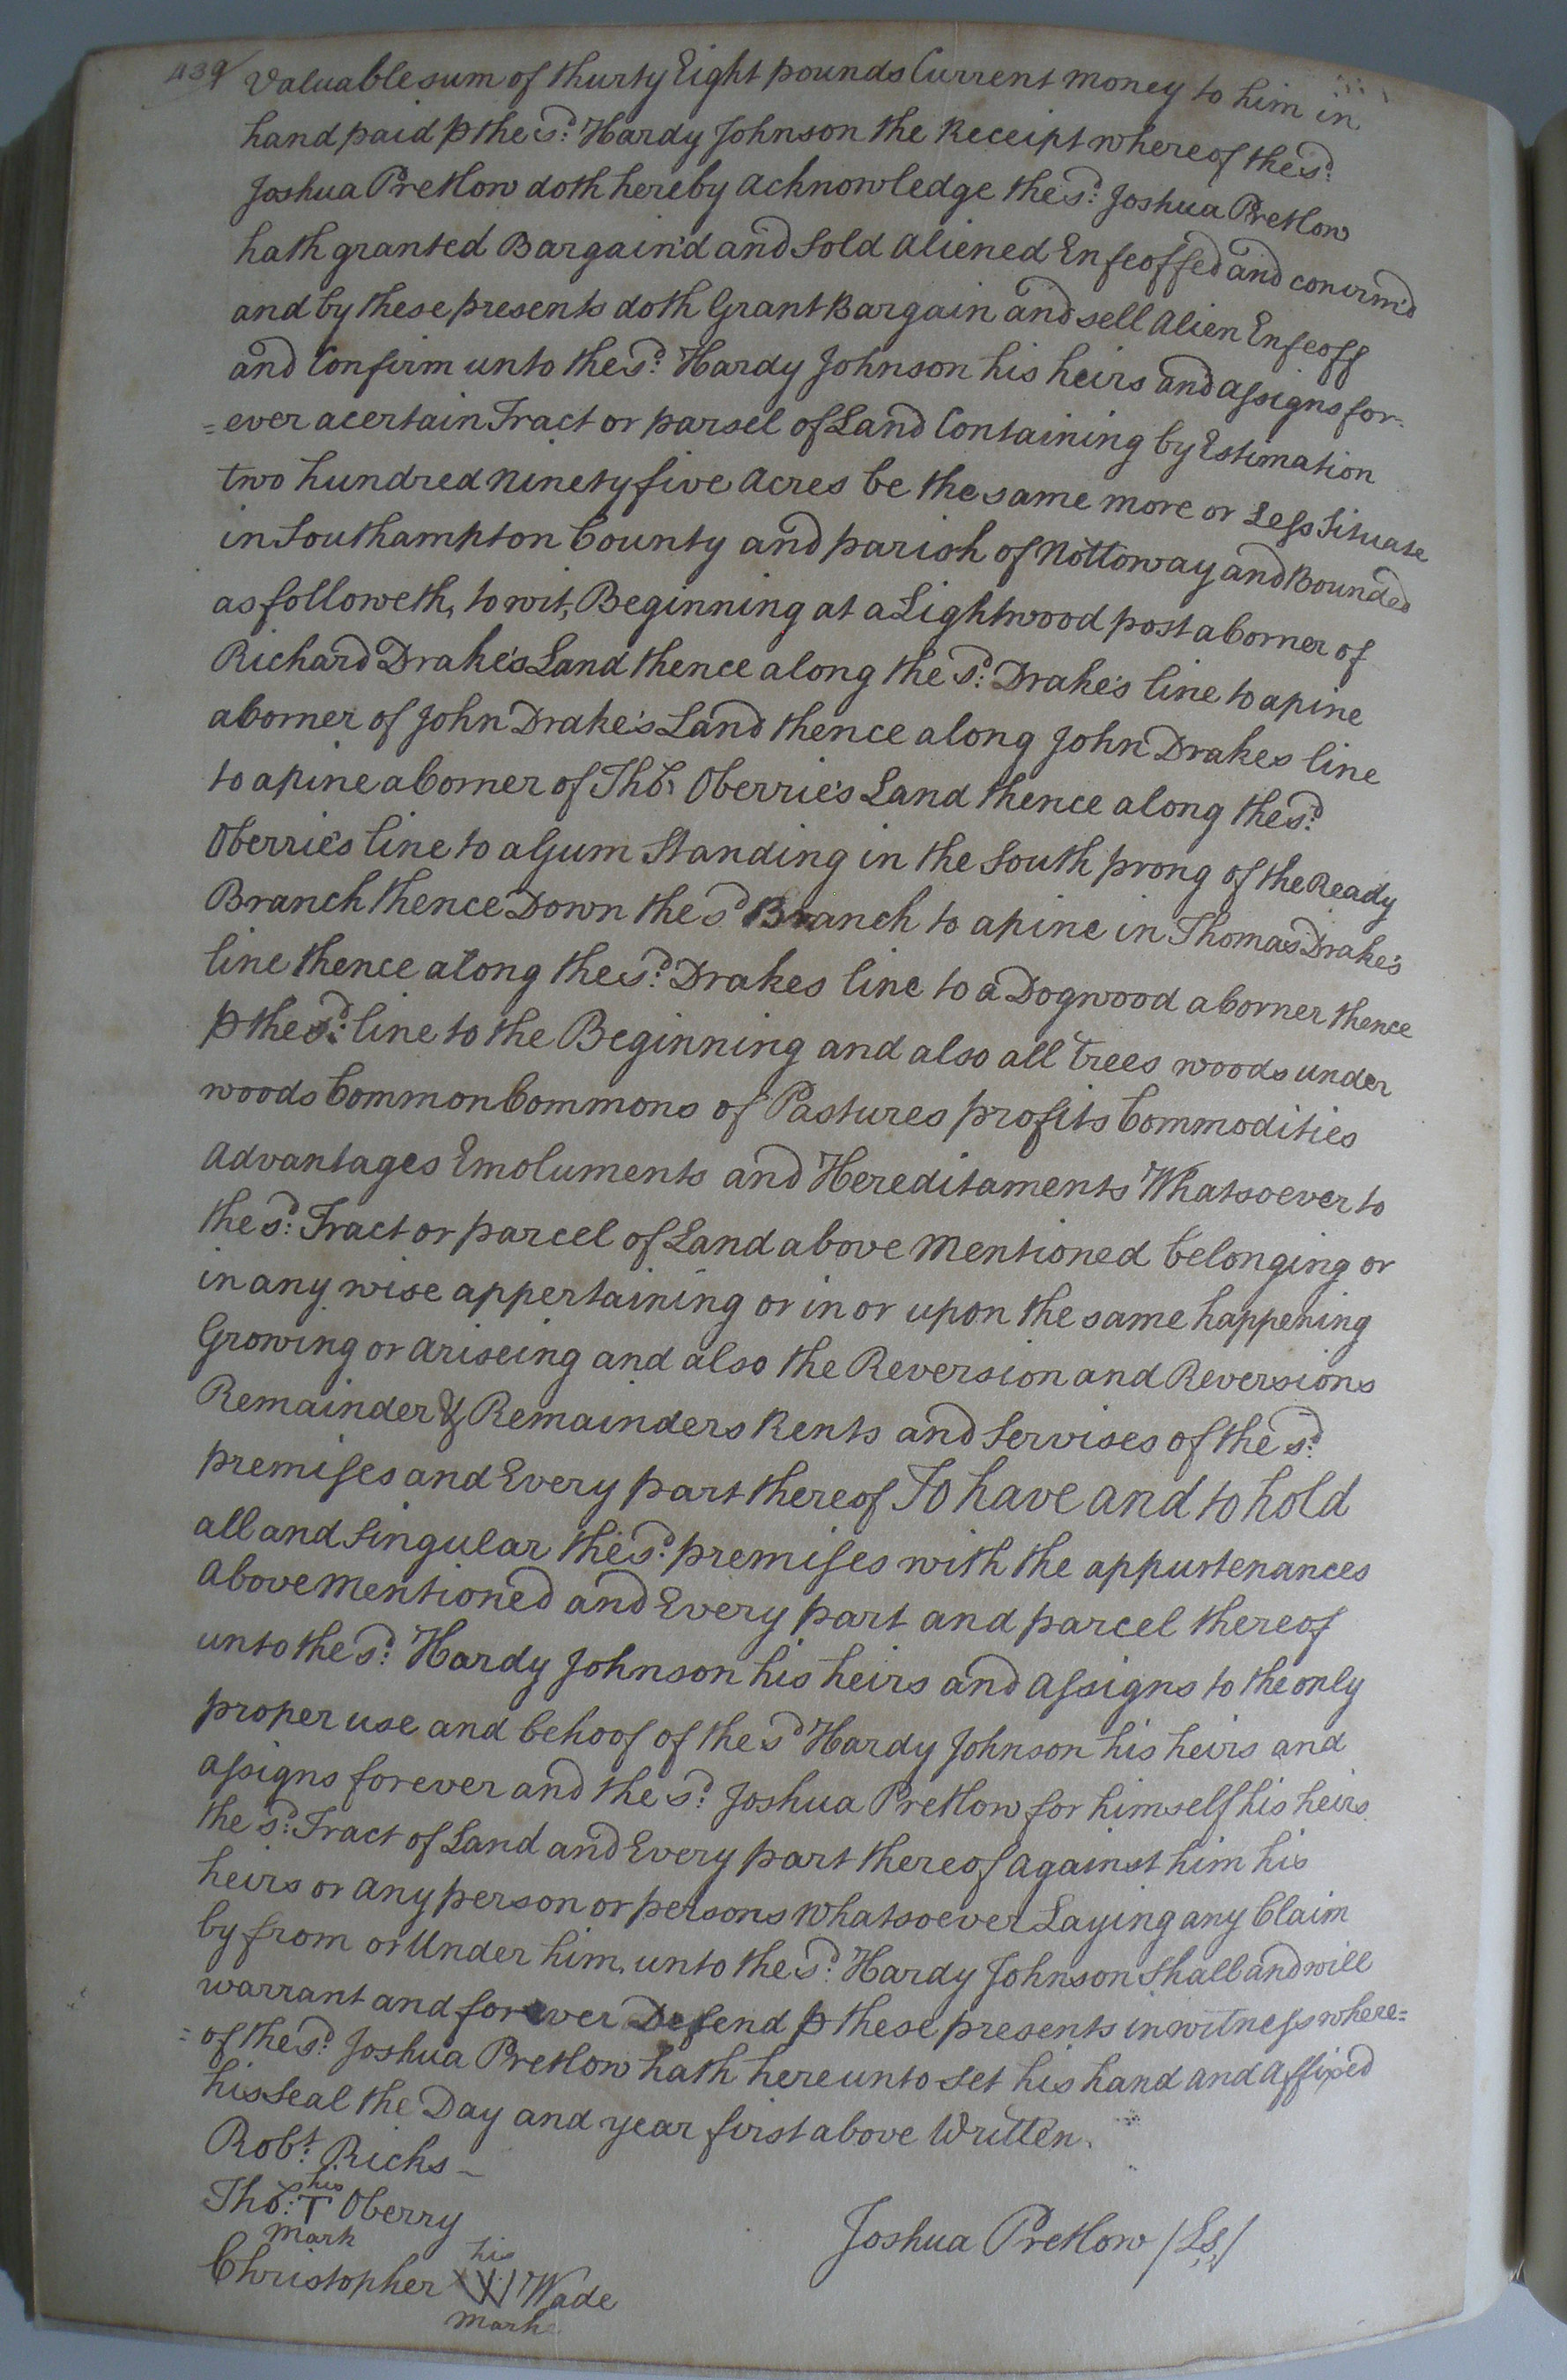 439 Valuable sum of thurty Eight pounds Current money to him in
hand paid p the sd: Hardy Johnson the Receipt whereof the sd:
Joshua Pretlow doth hereby acknowledge the sd: Joshua Pretlow
hath granted Bargain'd and Sold aliened Enfeoffed and conirm'd
and by these presents doth Grant Bargain and sell alien Enfeoff
and Confirm unto the sd: Hardy Johnson his heirs and assigns for-
=ever a certain Tract or parsel of Land Containing by Estimation
two hundred ninety five acres be the same more or Less Situate
in Southampton County and parish of Nottoway and Bounded
as followeth, to wit, Beginning at a Lightwood post a Corner of
Richard Drake's Land thence along the sd: Drake's line to a pine
a Corner of John Drake's Land thence along John Drakes line
to a pine a Corner of Tho: Oberrie's Land thence along the sd:
Oberrie's line to a Gum Standing in the South prong of the Ready
Branch thence Down the sd Branch to a pine in Thomas Drake's
line thence along the sd: Drakes line to a Dogwood a Corner thence
p the sd: line to the Beginning and also all trees woods under
woods Common Commons of Pastures profits Commodities
advantages Emoluments and Hereditaments Whatsoever to
the sd: Tract or parcel of Land above mentioned belonging or
in any wise appertaining or in or upon the same happening
Growing or ariseing and also the Reversion and Reversions
Remainder & Remainders Rents and Servises of the sd:
premises and Every part thereof To have and to hold
all and Singular the sd: premises with the appurtenances
above mentioned and Every part and parcel thereof
unto the sd: Hardy Johnson his heirs and assigns to the only
proper use and behoof of the sd Hardy Johnson his heirs and
assigns forever and the sd: Joshua Pretlow for himself his heirs
the sd: Tract of Land and Every part thereof against him his
heirs or any person or persons whatsoever Laying any Claim
by from or Under him, unto the sd: Hardy Johnson shall and will
warrant and forever Defend p these presents in witness where=
=of the sd: Joshua Pretlow hath hereunto set his hand and affixed
his Seal the Day and year first above Written.
Robt: Ricks
his
Tho: T Oberry
mark
Joshua Pretlow /Ls/
his
Christopher W Wade
mark